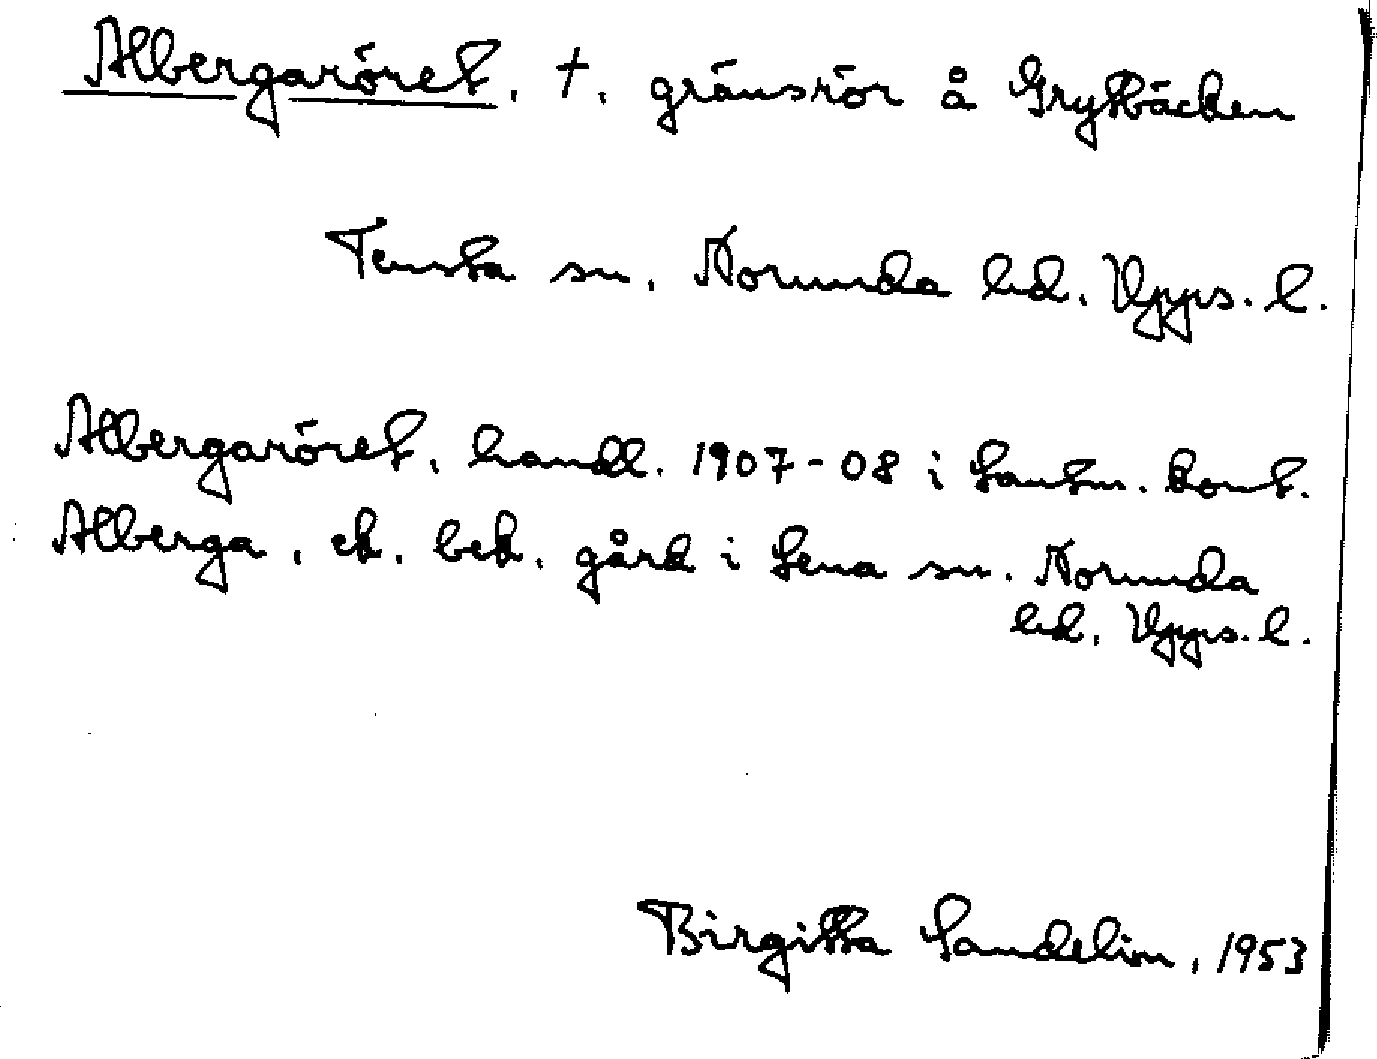 Albergaröret, †, gränsrör å Grytbäcken
Tensta sn, Norunda hd, Upps. l.
Albergaröret, handl. 1907-08 i Lantm. kont.
Alberga, ek. bet. gård i Lena sn. Norunda
hd, Upps. l.
Birgitta Sandelin, 1953